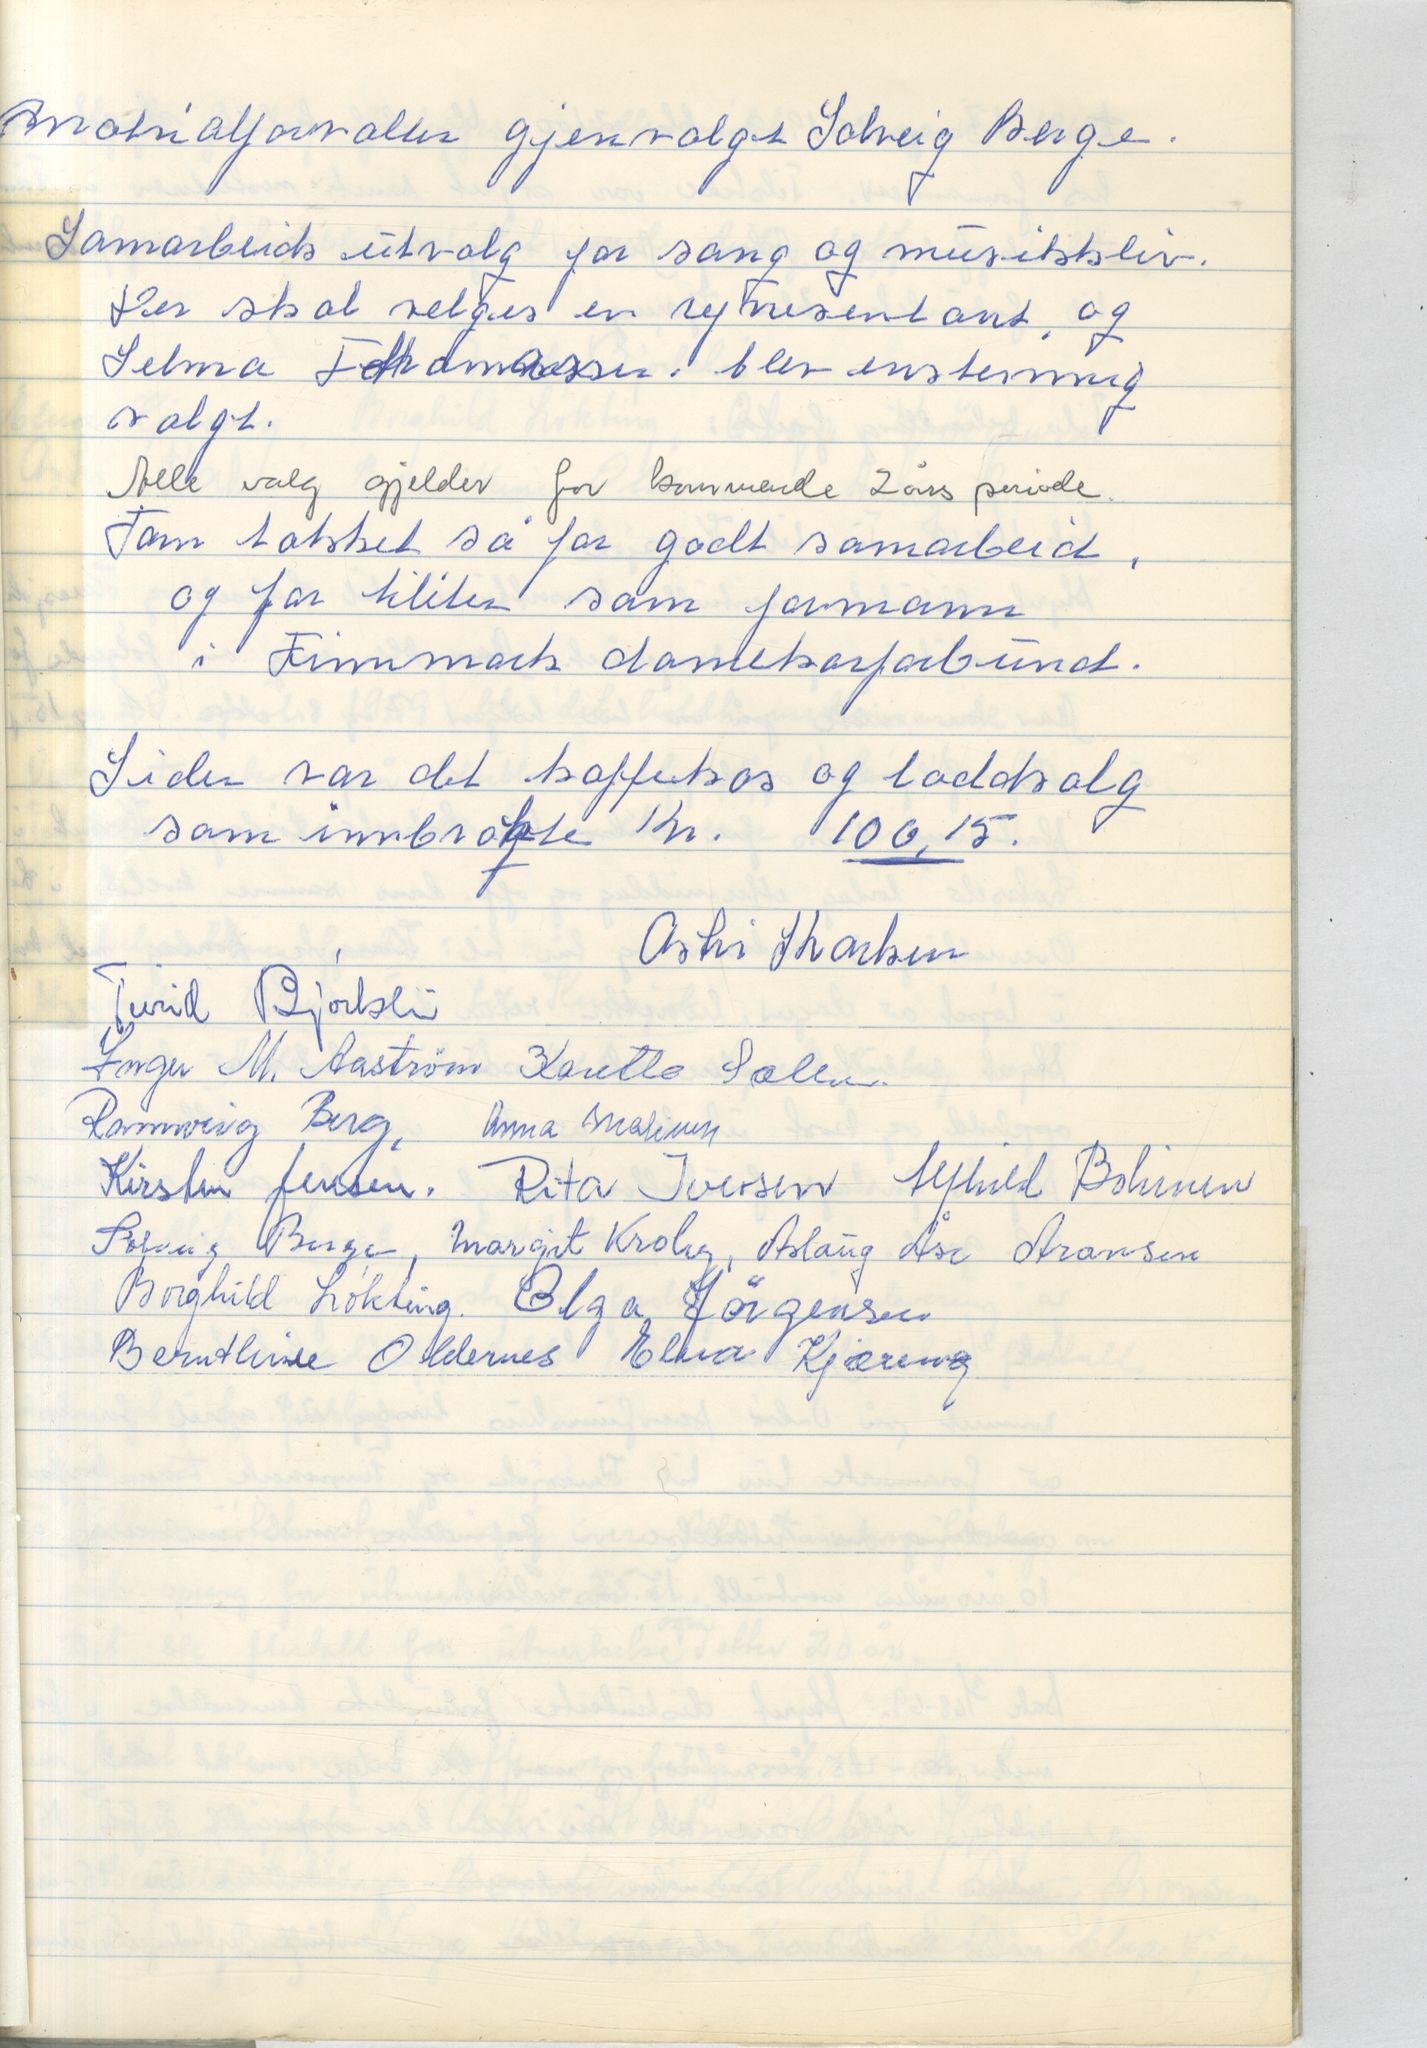 Materialforvalter gjenvalgt Solveig Berge.
Samarbeids utvalg for sang og musikkliv.
Her skal velges en representant, og
Selma Thomassen. blev enstemmig
valgt.
Alle valg gjelder for kommende 2 års periode.
Form takket så for godt samarbeid,
og for tilliten som formann
i Finnmark damekorforbund.
Siden var det kaffekos og loddsalg
som innbrakte Kr. 106,15.
Astri Skarken
Turid Bjørkli
Inger M. Aaström Karette Salen.
Rannveig Berg, Anna
Kirsten Jensen. Rita Iversen Alfhild Bohinen
Solveig Berge, Margit Kroly, Aslaug Åse Aronsen
Borghild Løkting. Olga Jörgensen
Bernthine Oldernes Elna Kjæreng